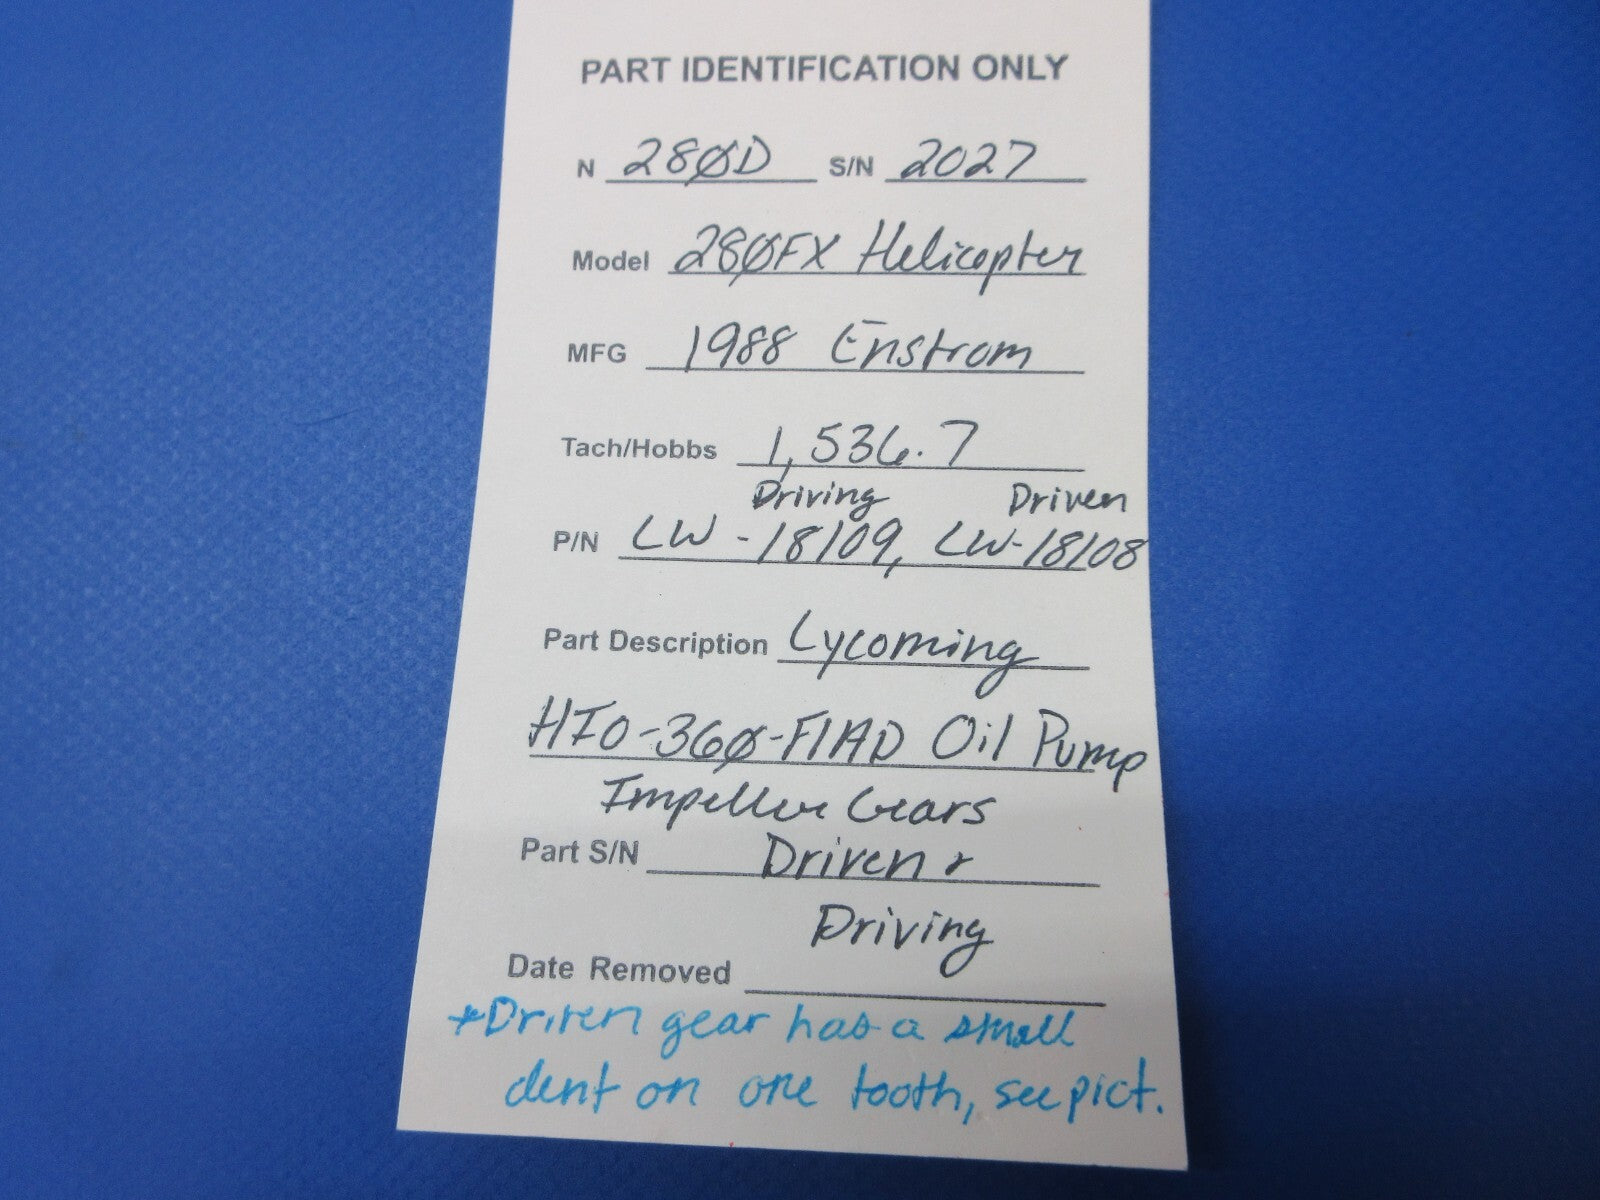 PART IDENTIFICATION ONLY
N 28ØD S/N 2027
Model 28ØFX Helicopter
MFG 1988 Enstrom
Tach/Hobbs 1,536.7
Driving Driven
P/N LW-18109, LW-18108
Part Description Lycoming
HIO-36Ø-F1AD Oil Pump
Impeller Gears
Part S/N Driven &
Driving
Date Removed
*Driven gear has a small
dent on one tooth, see pict.